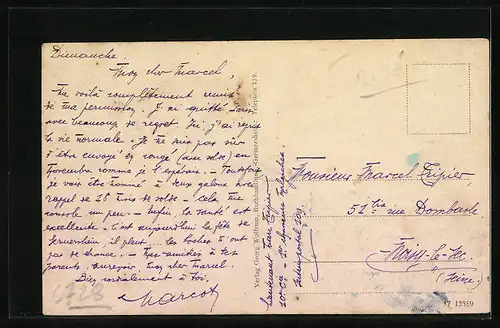 Dimanche,
Mon cher Marcel,
voilà complètement remis
de ma permission. J'ai quitté Paris
avec beaucoup de regret. Ici j'ai repris
la vie normale. Je ne suis pas sûr
d'être envoyé en congé (avec solde) en
Novembre comme je l'espérais. Toutefois
je vais être nommé à deux galons avec
rappel de 28 mois de solde - Cela me
console un peu. - Enfin, la santé est
excellente. C'est aujourd'hui la fête de
et il pleut ... les Boches n'ont
pas de chance. - Mes amitiés à tes
parents. Au revoir mon cher Marcel.
Bien cordialement à toi,
Marcot
1728
Verlag Georg Wolfrom, Buchhandlung, Germersheim a. Rh. Telephon 119.
Lieutenant Marc
Secteur postal 209
Monsieur Marcel
52 bis rue Dombasle
Noisy-le-Sec
(Seine)
17 13359